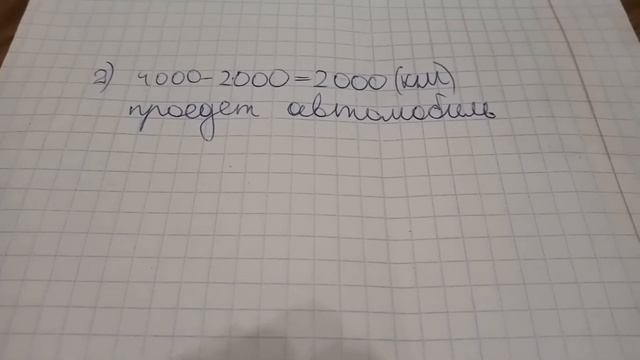 2) 4000-2000=2000 (км)
проедет автомобиль